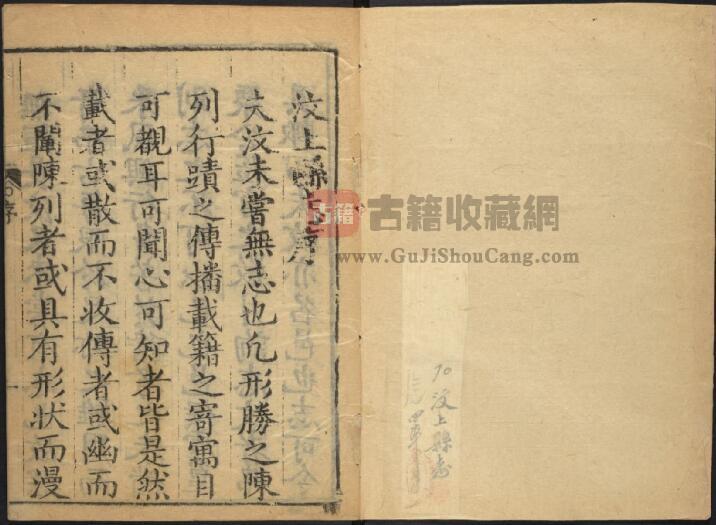 汶上縣志序
夫汶未嘗無志也凢形勝之陳
列行蹟之傳播載籍之寄寓目
可覩耳可聞心可知者皆是然
載者或散而不收傳者或幽而
不闡陳列者或具有形狀而漫
序
古籍
古籍收藏網
www.GuJiShouCang.com
70
汶上縣志